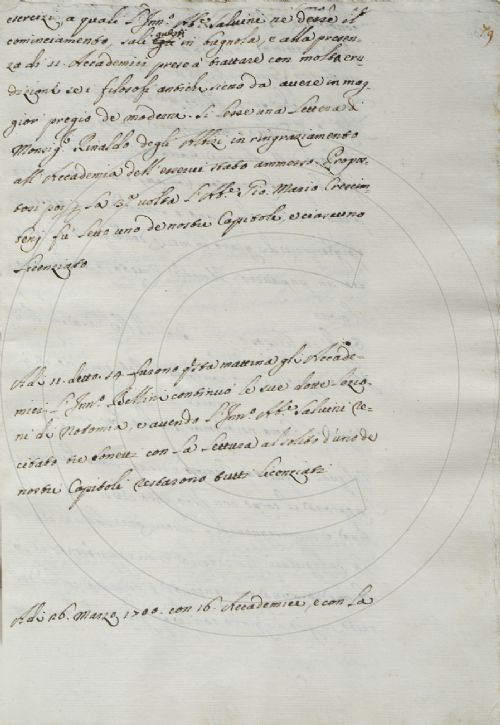 79
esercizi, a quali l'Inn.º Ab.e Salvini ne dette il
cominciamento, salì questi in bugnola, e alla presen-
za di 11. Accademici prese à trattare con molta eru-
dizione se i filosofi antichi sieno da avere in mag-
gior pregio de moderni. Si lesse una Lettera di
Monsig.re Rinaldo degli Albizi in ringraziamento
all'Accademia dell'esservi stato ammesso. Propo-
stosi poi p la 3.a volta l'Ab.e Gio. Mario Crescim-
benj fù letto uno de nostri Capitoli, e ciascuno
licenziato
Adi 11. detto. 19 furono q.sta mattina gli Accade-
mici. L'Inn.º Bellini continuò le sue dotte lezio-
ni di Notomia, e avendo l'Inn.º Ab.e Salvini re-
citato tre sonetti con la lettura al solito d'uno de
nostri Capitoli restarono tutti licenziati
Adi 26. Marzo 1700. con 16. Accademici, e con la